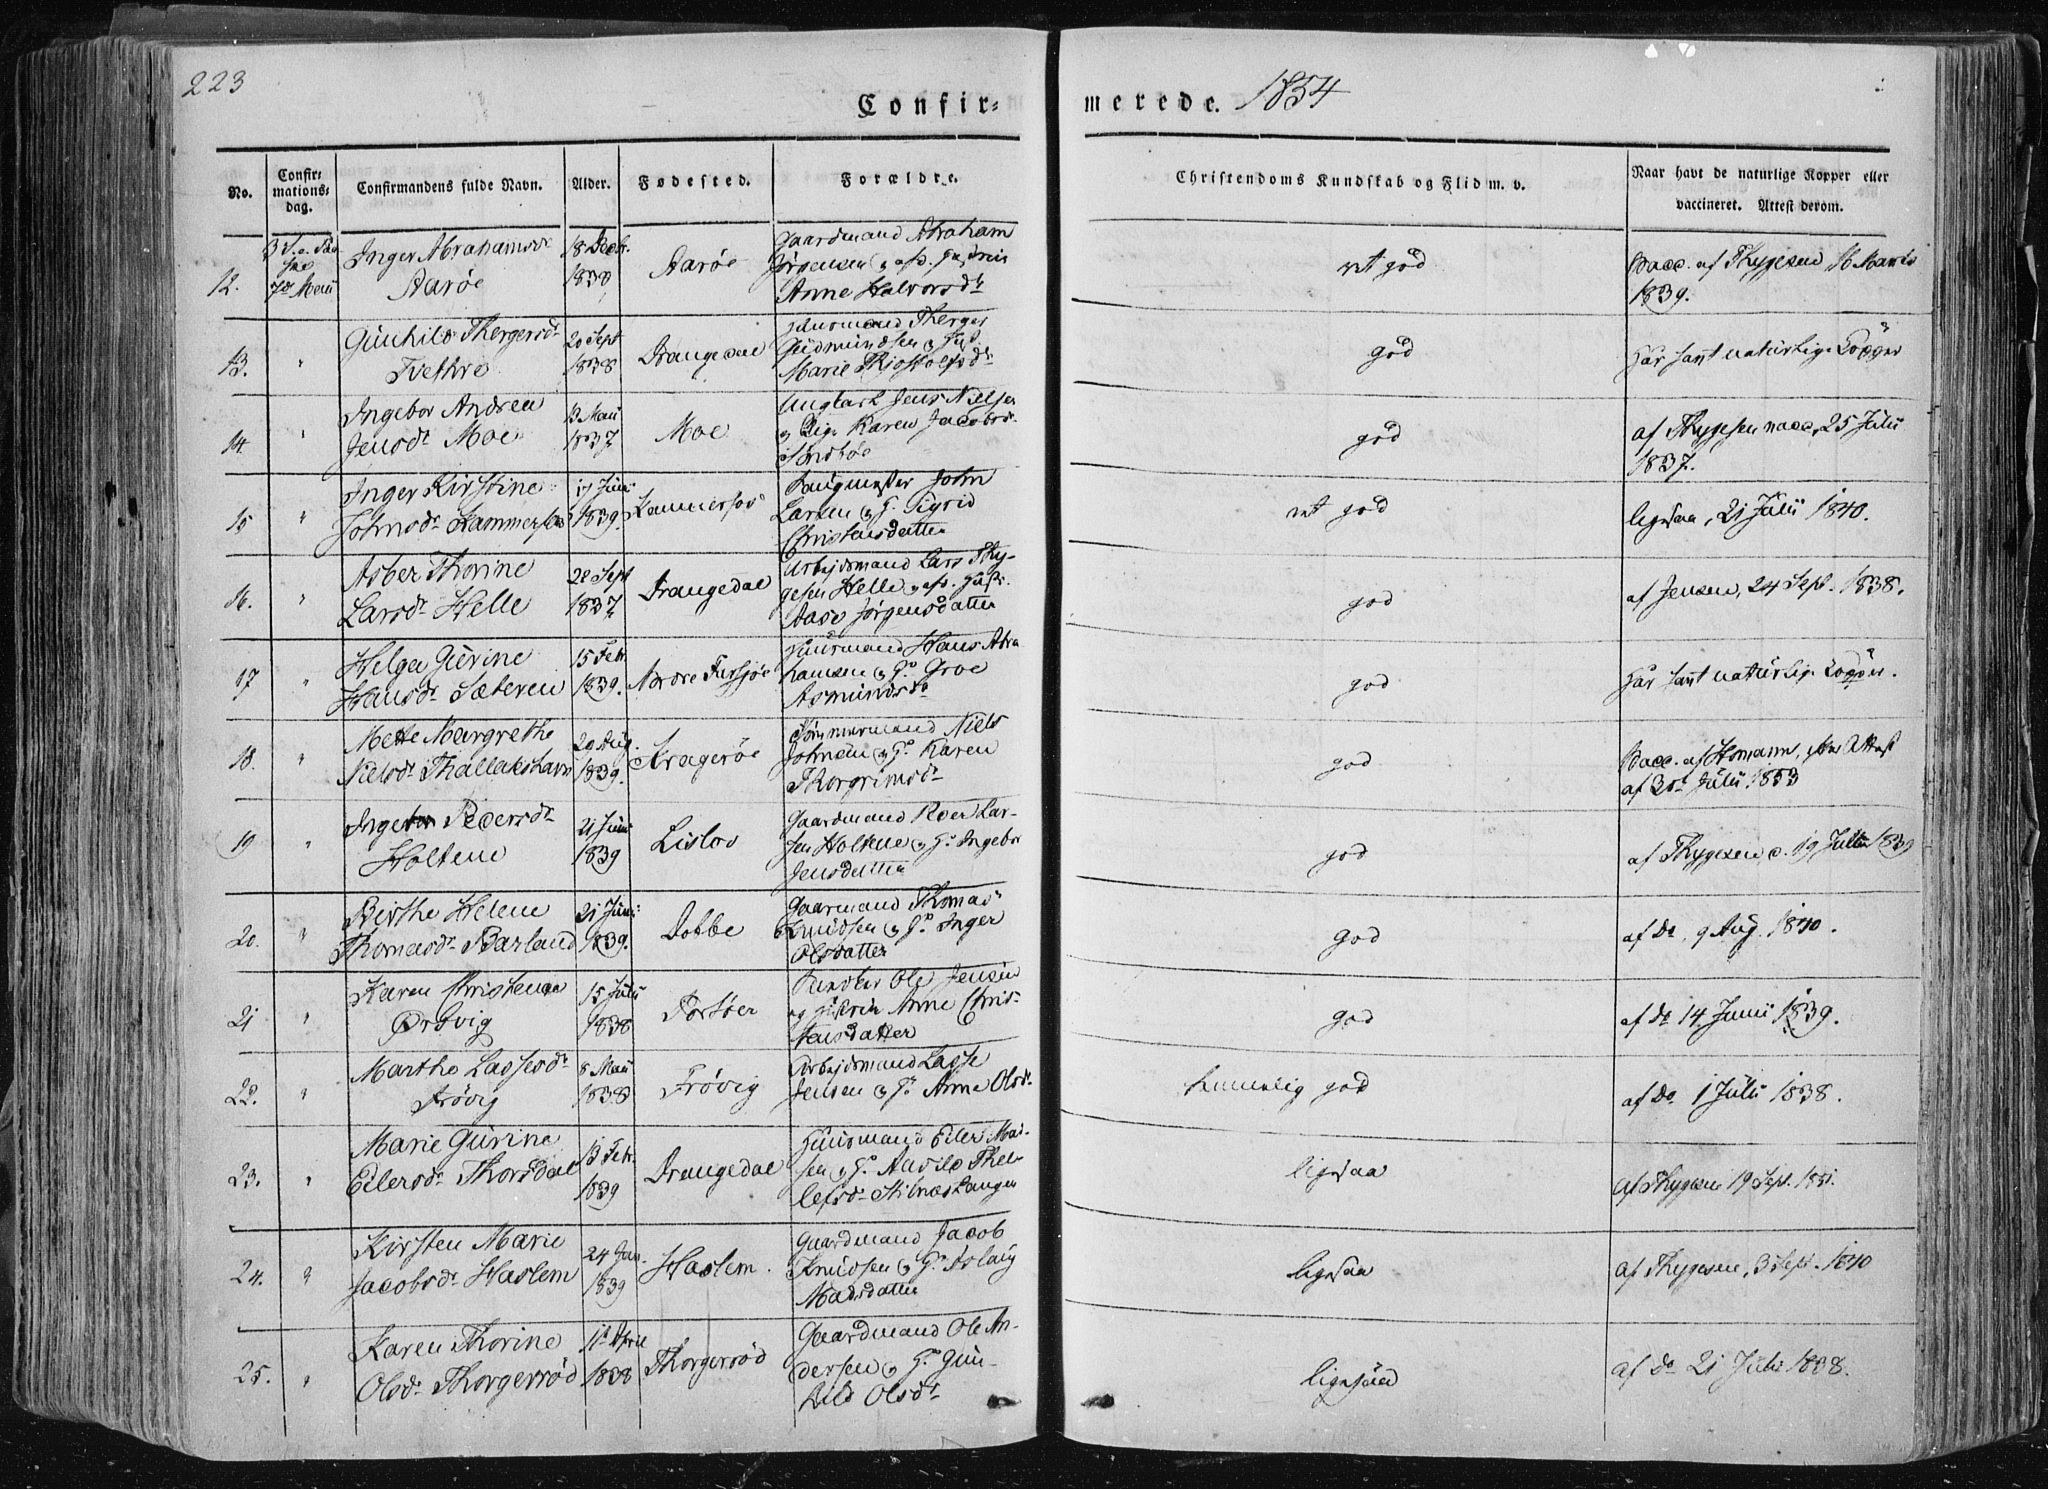 223
Confir-
merede. 1854
No.
Confir-
mations-
dag.
Confirmandens fulde Navn.
Alder.
Fødested.
Forældre.
Christendoms Kundskab og Flid m. v.
Naar havt de naturlige Kopper eller
vaccineret. Attest derom.
12.
7de Maii
Inger Abrahamsdr
Aarøe
18 Decbr.
1838
Aarøe
Gaardmand Abraham
Jørgensen og afd. Hustrue
Anne Halvorsdr
ret god
Vacc. af Thygesen 16 Marts
1839.
13.
"
Gunhild Thergersdr
Tvethre
20 Sept
1838
Drangedal
Huusmand Therger
Gudmundsen og Hust.
Marie Thjostolfsdr
god
har havt naturlige Kopper
14.
"
Ingebor Andrea
Jensdr Moe
13 Maii
1837
Moe
Ungkarl Jens Nielsen
og Pige Karen Jacobsdr
god
af Thygesen vacc. 25 Julii
1837.
15
"
Inger Kirstine
Johnsdr Kammerfos
17 Juni
1839.
Kammerfos
John
Larsen og H. Sigrid
Christensdatter
ret god
ligesaa, 21 Julii 1840.
16.
"
Asber Thorine
Larsdr Helle
28 Sept
1837
Drangedal
Arbejdsmand Lars Thy-
gesen Helle og afd. Hustr.
Aase Jørgensdatter
god
af Jensen, 24 Sept. 1838.
17
"
Helga Gurine
Hansdr Sæteren
15 Febr.
1839.
Nordre Farsjøe
Huusmand Hans Abra
hamsen og Ho Groe
Asmundsdr
god
har havt naturlige Kopper.
18.
"
Mette Margrethe
Nielsdr Thallakshavn
20 Aug.
1839.
Kragerøe
Tømmermand Niels
Johnsen og Ho Karen
Thorgrimsdr
god
Vacc. af Homann, efter Attest
af 30te Julii 1853
19
"
Ingebor Roersdr
Holtene
21 Juni
1839
Lislov
Gaardmand Roer Lar-
sen Holtene og Ho Ingebor
Jensdatter
god
af Thygesen d. 19 Julii 1839
20.
"
Birthe Helene
Thomasdr Barland
21 Juni
1839.
Dobbe
Gaarmand Thomas
Knudsen og Ho Inger
Olsdatter
god
af Do, 9 Aug. 1840.
21
"
Karen Christence
Ørdvig
15 Julii
1838
Portøer
Ole Jensen
og Hustrue Anne Chris-
tensdatter
god
af do 14 Junii 1839.
22.
"
Marthe Lassesdr
Frøvig
8 Maii
1838
Frøvig
Arbejdsmand Lasse
Jensen og Ho Anne Olsdr
temmelig god
af Do 1 Julii 1838.
23.
"
Marie Gurine
Eilersdr Thorsdal
13 Febr.
1839
Drangedal
Huusmand Eiler Mad-
sen og Ho Aasild Thel-
lefsdr Stilnæstangen
ligesaa
af Thygesen 19 Sept. 1851.
24.
"
Kirsten Marie
Jacobsdr Haslem
24 Jan.
1839
Haslem.
Gaardmand Jacob
Knudsen og Ho Aslaug
Madsdatter
ligesaa
af Thygesen, 3 Sept. 1840
25.
"
Karen Thorine
Olsdr Thorgersrød
11te April
1838
Thorgersrød
Gaardmand Ole An-
dersen og Ho Gun-
hild Olsdr
ligesaa
af do 21 Julii 1838.